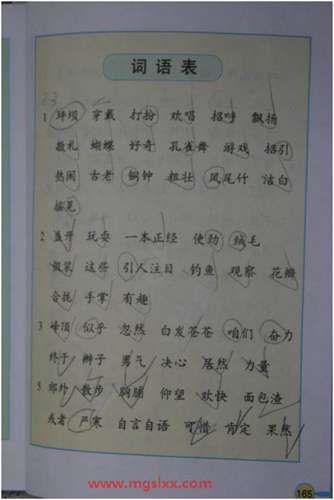 词语表
1 坪坝 穿戴 打扮 欢唱 招呼 飘扬
敬礼 蝴蝶 好奇 孔雀舞 游戏 招引
热闹 古老 铜钟 粗壮 凤尾竹 洁白
摇晃
2 盖开 玩耍 一本正经 使劲 绒毛
假装 这些 引人注目 钓鱼 观察 花瓣
合拢 手掌 有趣
3 峰顶 似乎 忽然 白发苍苍 咱们 奋力
终于 辫子 勇气 决心 居然 力量
5 郊外 散步 胸脯 仰望 欢快 面包渣
或者 严寒 自言自语 可惜 肯定 果然
165
www.mgslxx.com